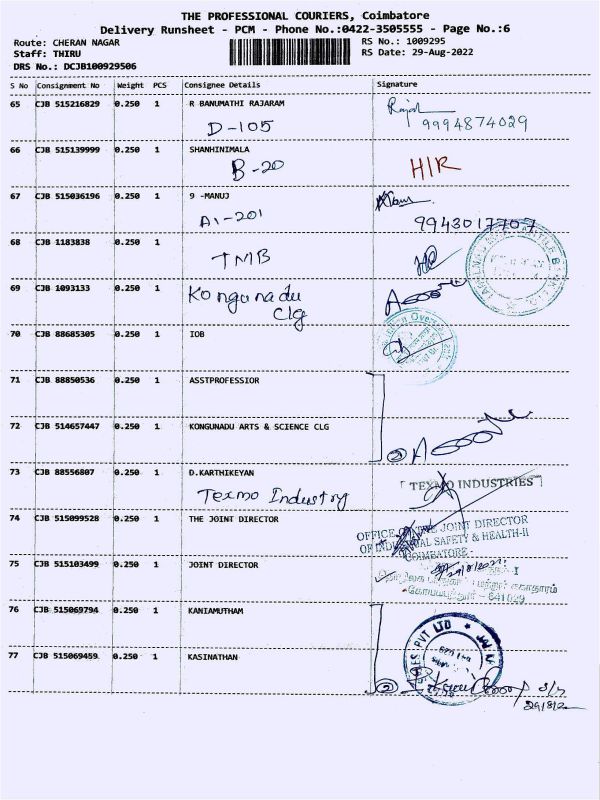 THE PROFESSIONAL COURIERS, Coimbatore
Delivery Runsheet - PCM - Phone No.:0422-3505555 - Page No.:6
Route: CHERAN NAGAR
RS No.: 1009295
Staff: THIRU
RS Date: 29-Aug-2022
DRS No.: DCJB100929506
S No Consignment No Weight PCS Consignee Details Signature
65 CJB 515216829 0.250 1 R BANUMATHI RAJARAM
D-105 9994874029
66 CJB 515139999 0.250 1 SHANHINIMALA
B-20 HIR
67 CJB 515036196 0.250 1 9 -MANUJ
A1-201 9943017707
68 CJB 1183838 0.250 1
TMB
69 CJB 1093133 0.250 1 Kongunadu
Clg
70 CJB 88685305 0.250 1 IOB
71 CJB 88850536 0.250 1 ASSTPROFESSIOR
72 CJB 514657447 0.250 1 KONGUNADU ARTS & SCIENCE CLG
2
73 CJB 88556807 0.250 1 D.KARTHIKEYAN
Texmo Industry TEXMO INDUSTRIES
74 CJB 515099528 0.250 1 THE JOINT DIRECTOR
OFFICE OF THE JOINT DIRECTOR
OF INDUSTRIAL SAFETY & HEALTH-II
COIMBATORE
75 CJB 515103499 0.250 1 JOINT DIRECTOR
641029
76 CJB 515069794 0.250 1 KANIAMUTHAM
PVT LTD
77 CJB 515069459 0.250 1 KASINATHAN
2